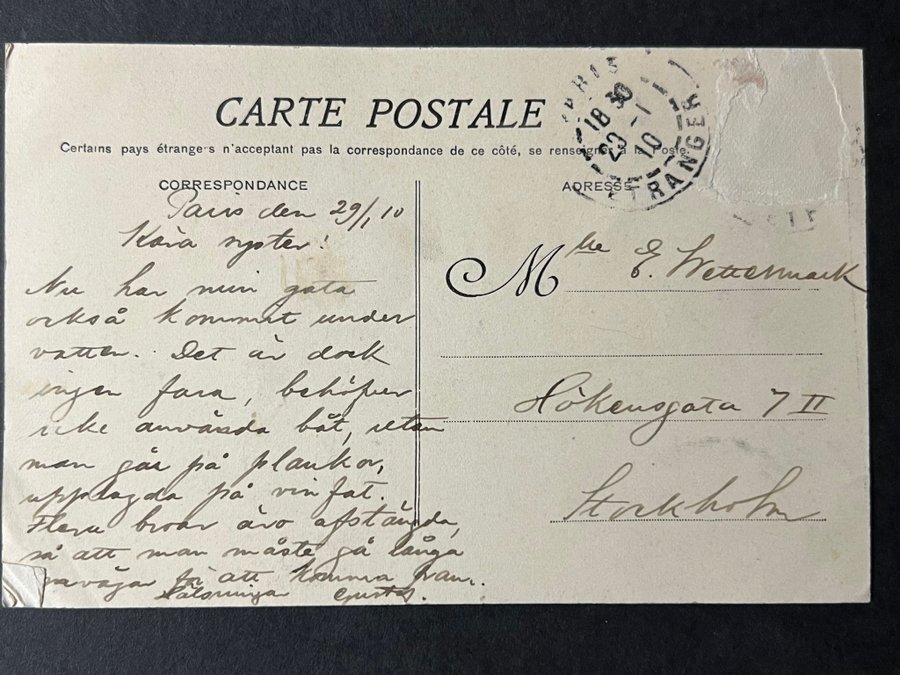 CARTE POSTALE
Certains pays étrangers n'acceptant pas la correspondance de ce côté, se renseigner à la Poste.
CORRESPONDANCE
Paris den 29/1 10
Kära syster!
Nu har min gata
också kommit under
vatten. Det är dock
ingen fara, behöfver
icke använda båt, utan
man går på plankor,
upplagda på vinfat.
Flera broar äro afstängda,
så att man måste gå långa
omvägar för att komma fram.
Hälsningar Gustaf.
PARIS
18 30
29 -1
10
ETRANGER
ADRESSE
Mlle E. Wettermark
Hökensgata 7 II
Stockholm